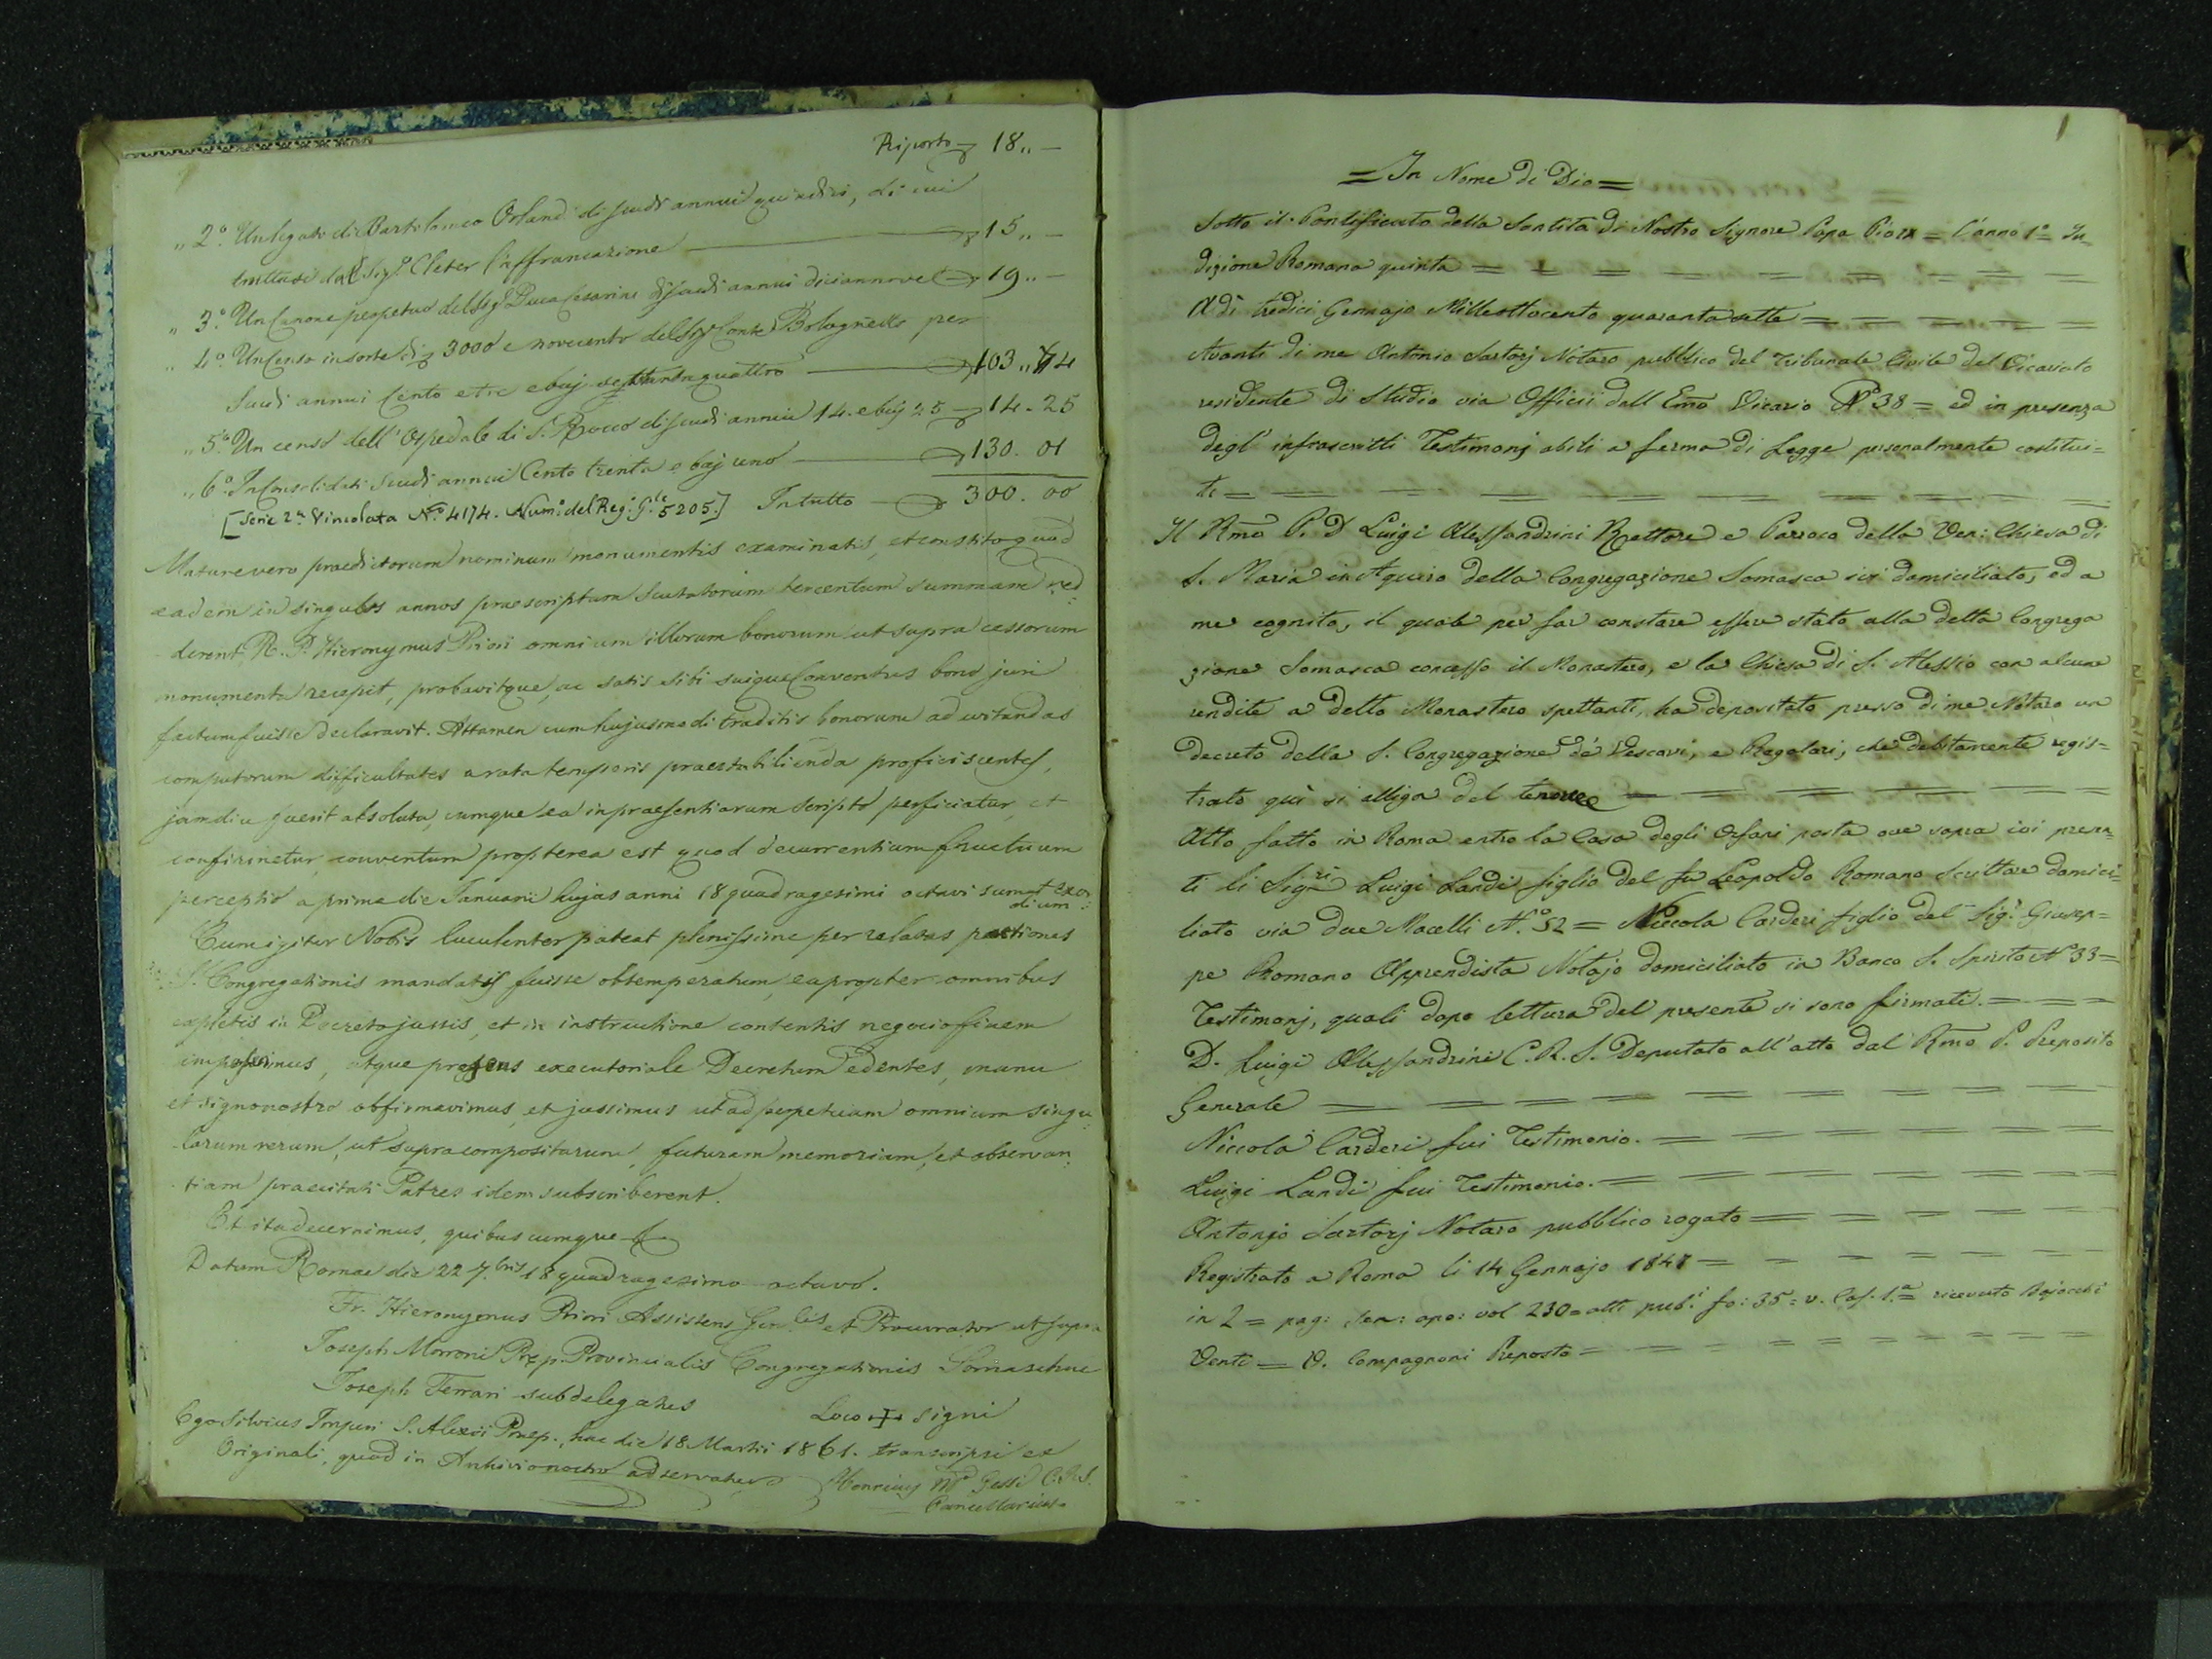 Riporto 18,, —
,, 2.° Un legato di Bartolomeo Orlandi di scudi annui quindici, di cui
trattasi dal Sig.r Cleter l'affrancazione — 15,, —
,, 3.° Un Canone perpetuo del Sig.r Duca Cesarini di scudi annui diciannove 19,, —
,, 4.° Un Censo in sorte di 3000 e novecento del Sig.r Conte Bolognetti per
Scudi annui Cento e tre e baj. settantaquattro — 103,, 74
,, 5.° Un censo dell'Ospedale di S. Rocco di scudi annui 14. e baj 25 — 14. 25
,, 6.° In Consolidati Scudi annui Cento trenta e baj uno — 130. 01
[Serie 2.a Vincolata N.° 4174. Num.° del Reg. G.le 5205.] In tutto — 300. 00
Mature vero praedictorum nominum monumentis examinatis, et constito quod
eadem in singulos annos praescriptam Scutatorum tercentum summam red=
derent, R. P. Hieronymus Priori omnium illorum bonorum ut supra cessorum
monumenta recepit, probavitque, ac satis sibi suique Conventus bono juri
factum fuisse declaravit. Attamen cum hujusmodi traditis bonorum ad vitandas
computorum difficultates a rata temporis praestabilienda proficiscentes,
jamdiu fuerit absoluta, cumque ea in praesentiarum scripto perficiatur, et
confirmetur, conventum propterea est quod decurrentium fructuum
perceptio a prima die Januarii hujus anni 18 quadragesimi octavi sumat exor=
dium
Cum igitur Nobis luculenter pateat plenissime per relatas pactiones
S. Congregationis mandatis fuisse obtemperatum, eapropter omnibus
expletis in Decreto jussis, et in instructione contentis negocio finem
imposuimus, atque praesens executoriale Decretum edentes, manu
et signo nostro obfirmavimus, et jussimus ut ad perpetuam omnium singu=
larum rerum, ut supra compositarum, futuram memoriam, et observan=
tiam praecitati Patres idem subscriberent.
Et ita decernimus, quibuscumque
Datum Romae die 22 7.bris 18 quadragesimo octavo.
Fr. Hieronymus Priori Assistens Gen.lis et Procurator ut supra
Joseph Morroni Prep. Provincialis Congregationis Somaschae
Joseph Ferrari subdelegatus
Loco + signi
Ego Silvius Imperi S. Alexii Praep., hac die 18 Martii 1861. transcripsi ex
Originali, quod in Archivio nostro adservatur
Henricus M.a Gessi C.R.S.
Cancellarius
1
= In Nome di Dio =
Sotto il Pontificato della Santità di Nostro Signore Papa Pio IX = l'anno 1.° In=
dizione Romana quinta = = = = = = = = =
A dì tredici Gennajo Milleottocento quarantasette = = = = = =
Avanti di me Antonio Sartorj Notaro pubblico del Tribunale Civile del Vicariato
residente di Studio via Officii dell Emo Vicario N.° 38 = ed in presenza
degl' infrascritti Testimonj abili a forma di Legge personalmente costitui=
to = = = = = = = = = =
Il Rmo P. D Luigi Alessandrini Rettore e Parroco della Ven: Chiesa di
S. Maria in Aquiro della Congregazione Somasca ivi domiciliato, ed a
me cognito, il quale per far constare essere stato alla detta Congrega
zione Somasca concesso il Monastero, e la Chiesa di S. Alessio con alcune
rendite a detto Monastero spettanti, ha depositato presso di me Notaro un
decreto della S. Congregazione de' Vescovi, e Regolari, che debitamente regis=
trato quì si alliga del tenore = = = = = =
Atto fatto in Roma entro la Casa degli Orfani posta ove sopra ivi presen=
ti li Sig.ri Luigi Landi figlio del fu Leopoldo Romano Scrittore domici=
liato via due Macelli N.° 52 = Niccola Carderi figlio del Sig.r Giusep=
pe Romano Apprendista Notajo domiciliato in Banco S. Spirito N.° 33 =
Testimonj, quali dopo lettura del presente si sono firmati. = = =
D. Luigi Alessandrini C. R. S. Deputato all'atto dal Rmo P. Preposito
Generale = = = = = = = = =
Niccola Carderi fui Testimonio. = = = = = =
Luigi Landi fui Testimonio. = = = = = = =
Antonio Sartorj Notaro pubblico rogato = = = = =
Registrato a Roma li 14 Gennajo 1847 = = = = = =
in 2 = pag: sen: apo: vol 230 = atti pub.i fo: 35 = v. Cas. 1.a = ricevuto Bajocchi
Venti = V. Compagnoni Preposto = = = = = = =